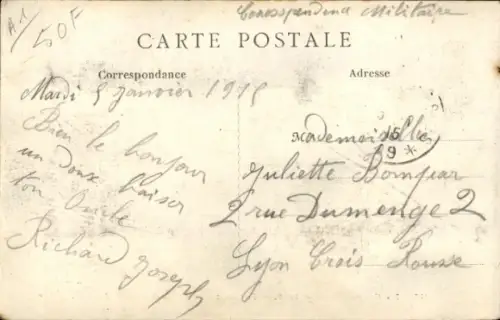 A1
50F
Corresspondence Militaire
CARTE POSTALE
Correspondance
Adresse
Mardi 5 janvier 1915
Bien le bonjour
un doux baiser
ton Oncle
Richard Joseph
15
9 *
Mademoiselle
Juliette
2 rue Dumenge 2
Lyon Croix Rousse